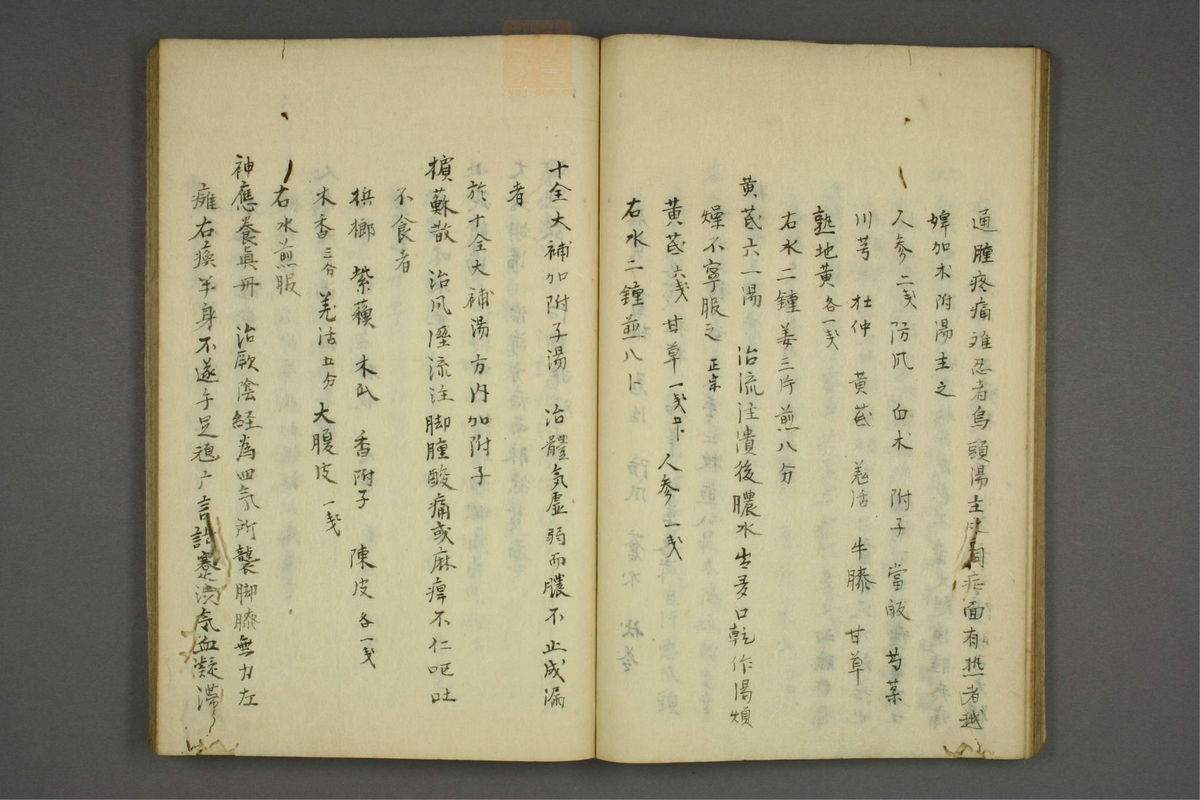 通腫疼痛難忍者烏頭湯主之同症面有熱者越
婢加术附湯主之
人参二戔 防风 白术 附子 當皈 芍薬
川芎 杜仲 黄芪 羌活 牛膝 甘草
熟地黄各一戔
右水二鍾姜三片煎八分
黄芪六一湯 治流注潰後膿水出多口乾作渇煩
燥不寧服之 正宗
黄芪六戔 甘草一戔五卜 人参一戔
右水二鍾煎八卜
十全大補加附子湯 治體気虚弱而膿不止成漏
者
於十全大補湯方内加附子
檳蘇散 治风湿流注脚腫酸痛或麻痺不仁呕吐
不食者
梹榔 紫蘓 木瓜 香附子 陳皮各一戔
木香三分 羌活五分 大腹皮一戔
右水煎服
神應養真丹 治厥陰経為四気所襲脚膝無力左
癱右瘓半身不遂手足頑广言語蹇渋気血凝滞